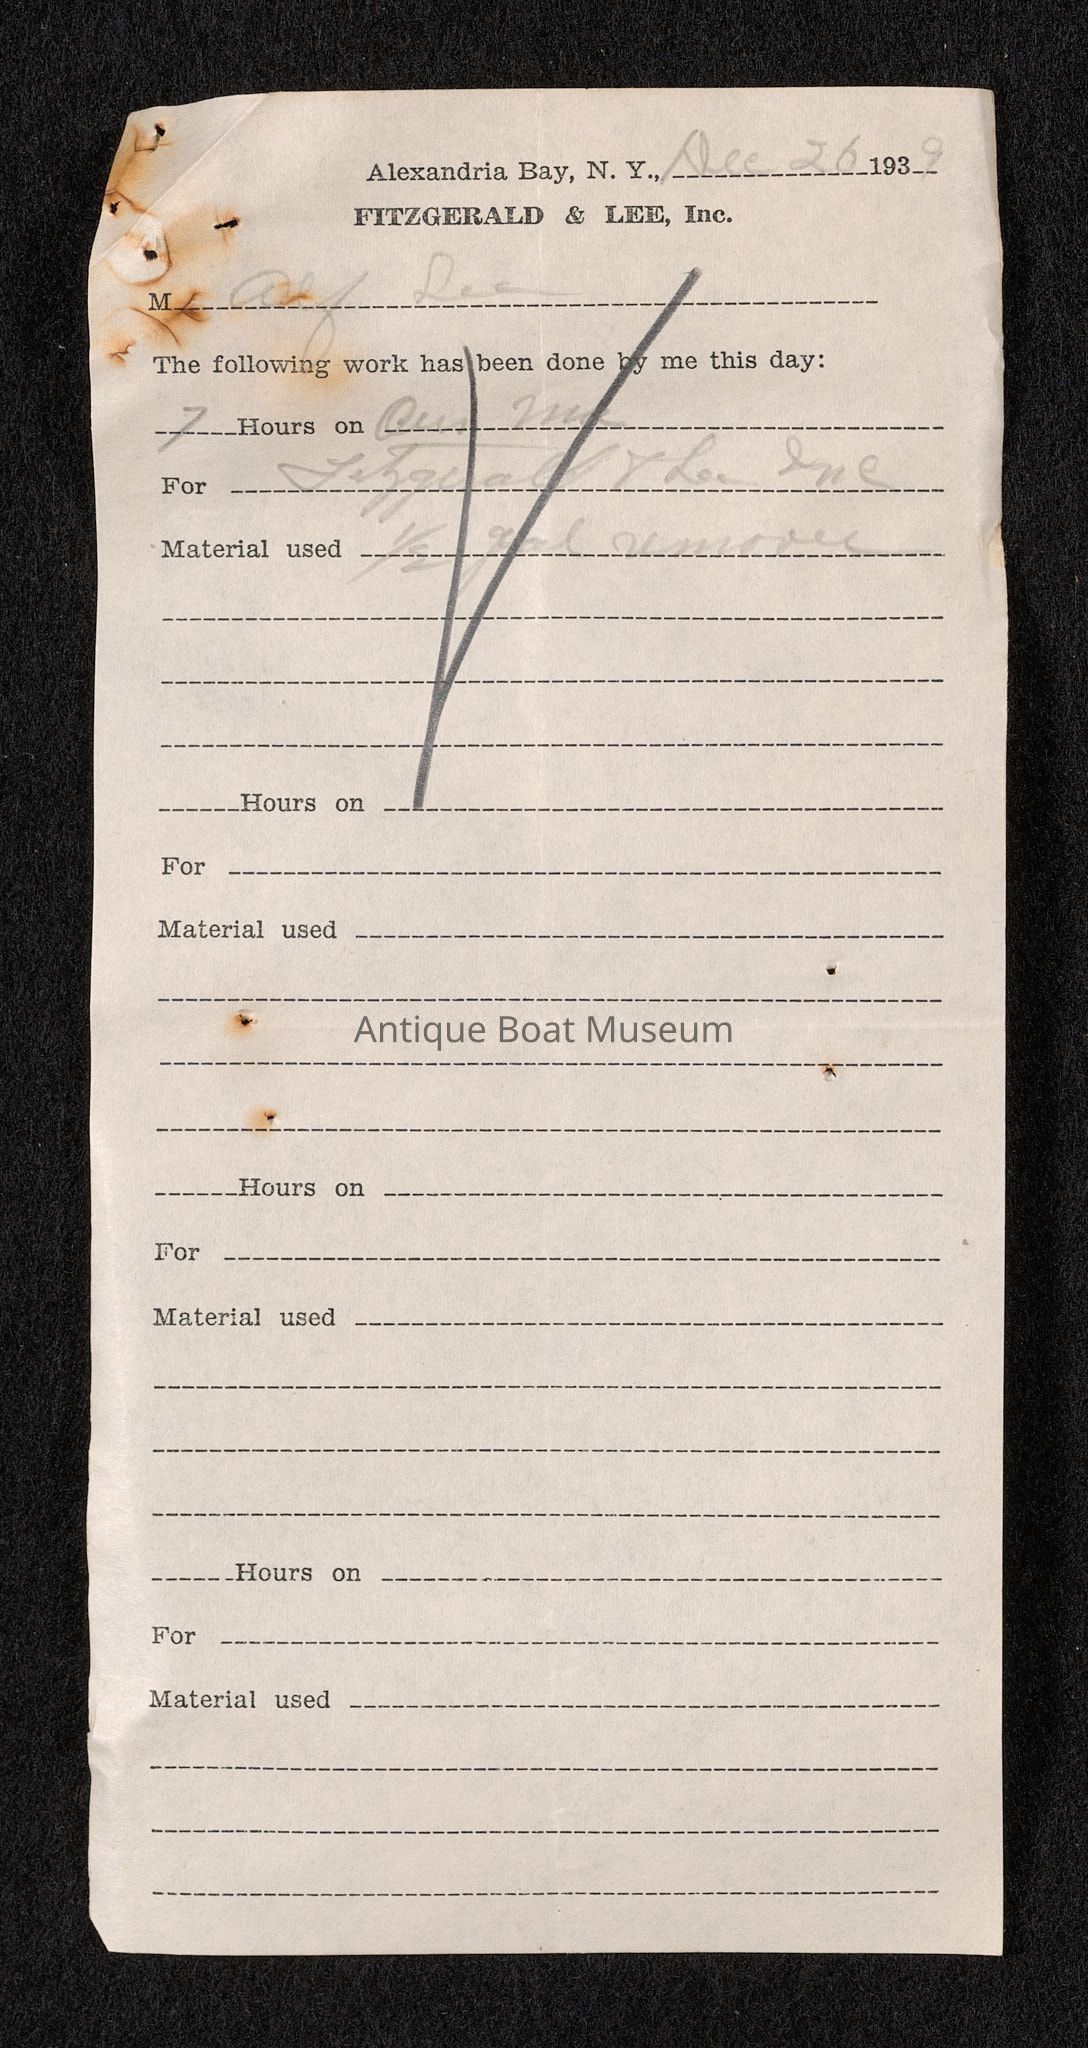 Alexandria Bay, N. Y., Dec 26 1939
FITZGERALD & LEE, Inc.
M Alf Lee
The following work has been done by me this day:
7 Hours on Our
For Fitzgerald & Lee Inc
Material used 1/2 gal remover
Hours on
For
Material used
Antique Boat Museum
Hours on
For
Material used
Hours on
For
Material used